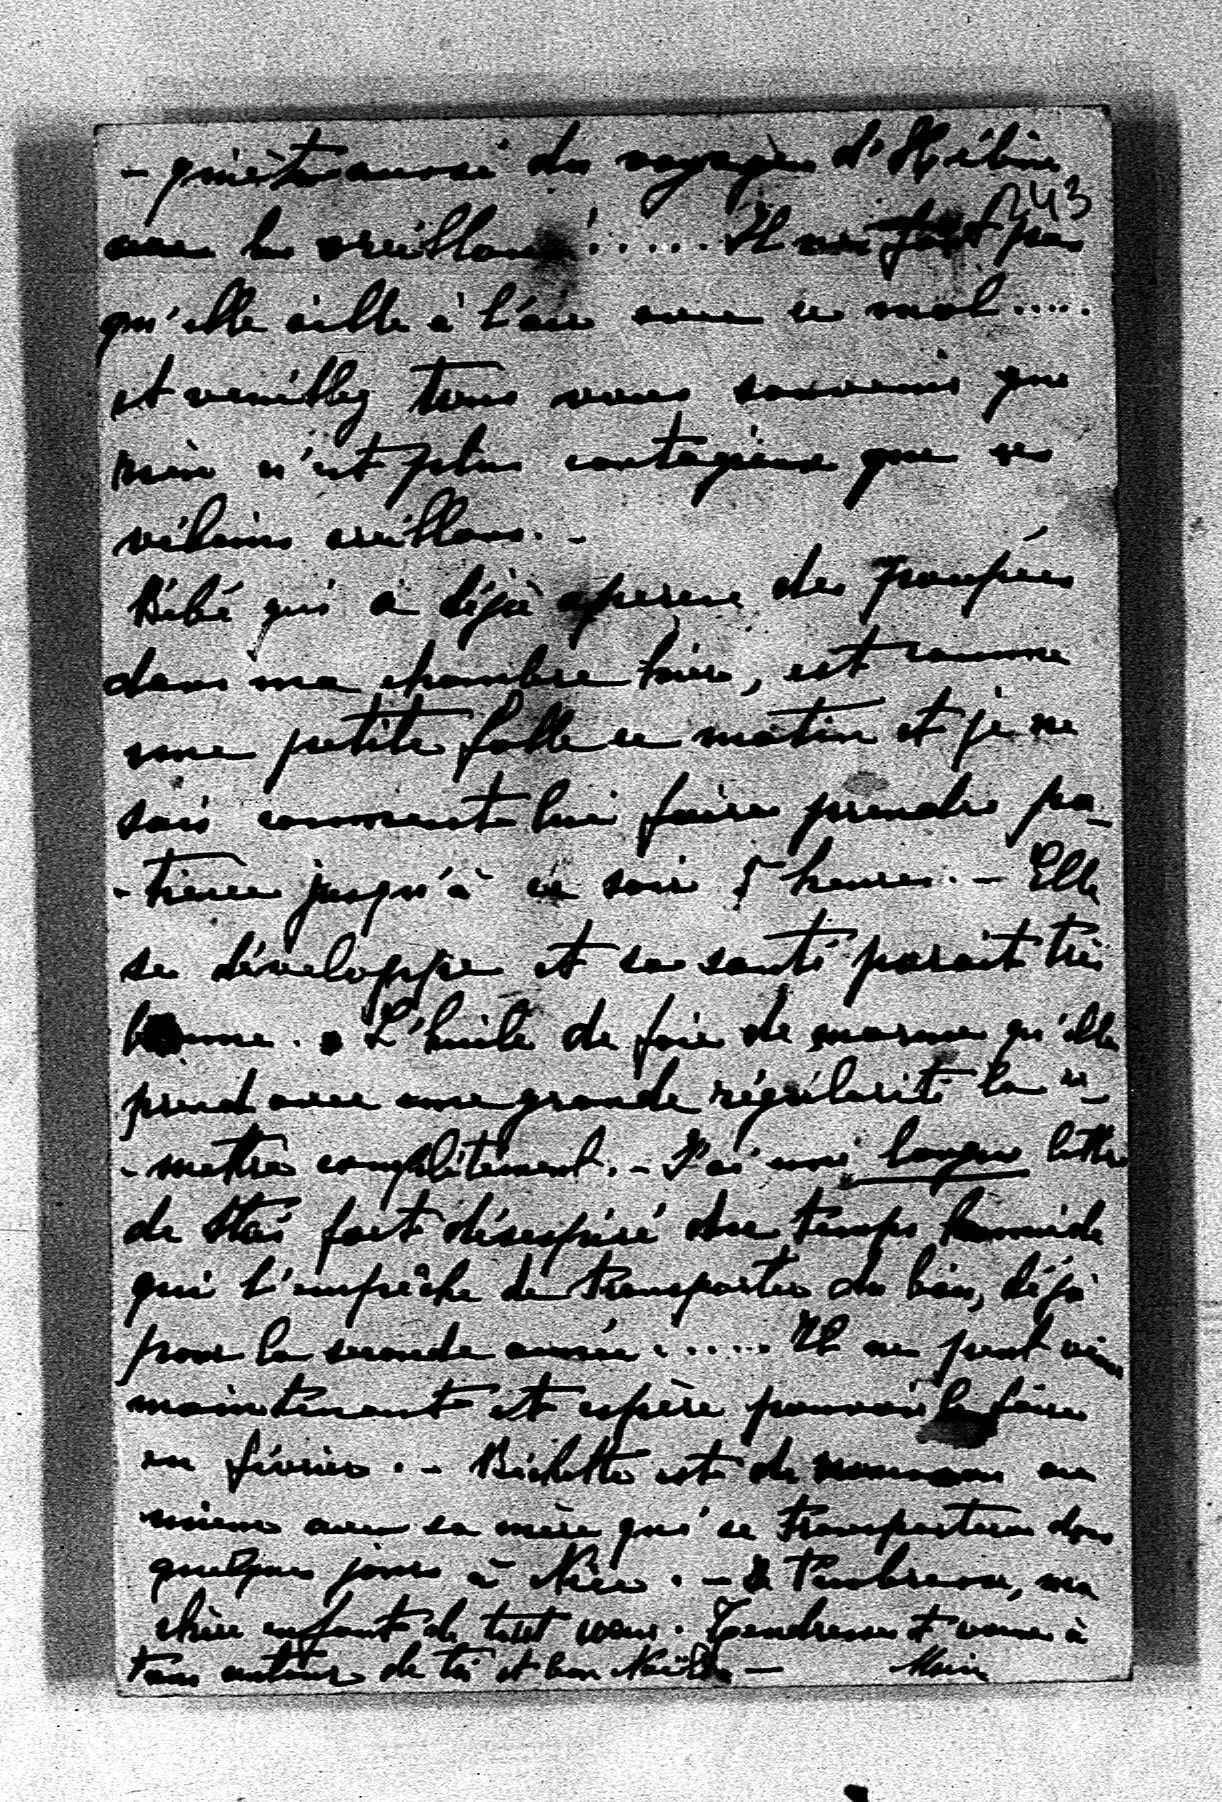 - quiète aussi des voyages d'Hélène
243
avec les oreillons ! ..... Il ne faut pas
qu'elle aille à l'air avec ce mal .....
et veuillez tous vous souvenir que
rien n'est plus contagieux que ces
vilains oreillons. -
Bébé qui a déjà aperçu des poupées
dans ma chambre hier, est comme
une petite folle ce matin et je ne
sais comment lui faire prendre pa-
-tience jusqu'à ce soir 5 heures. - Elle
se développe et sa santé parait très
bonne. L'huile de foie de morue qu'elle
prend avec une grande régularité la re-
-mettra complètement. - J'ai une longue lettre
de Stas fort désespéré du temps humide
qui l'empêche de transporter du bois, déjà
pour la seconde année ..... Il ne peut venir
maintenant et espère pouvoir le faire
en février. - Bichette est de nouveau au
mieux avec sa mère qui se transportera dans
quelques jours à Nice. - Je t'embrasse, ma
chère enfant de tout cœur. Tendresses et vœux à
tous autour de toi et bon Noël -